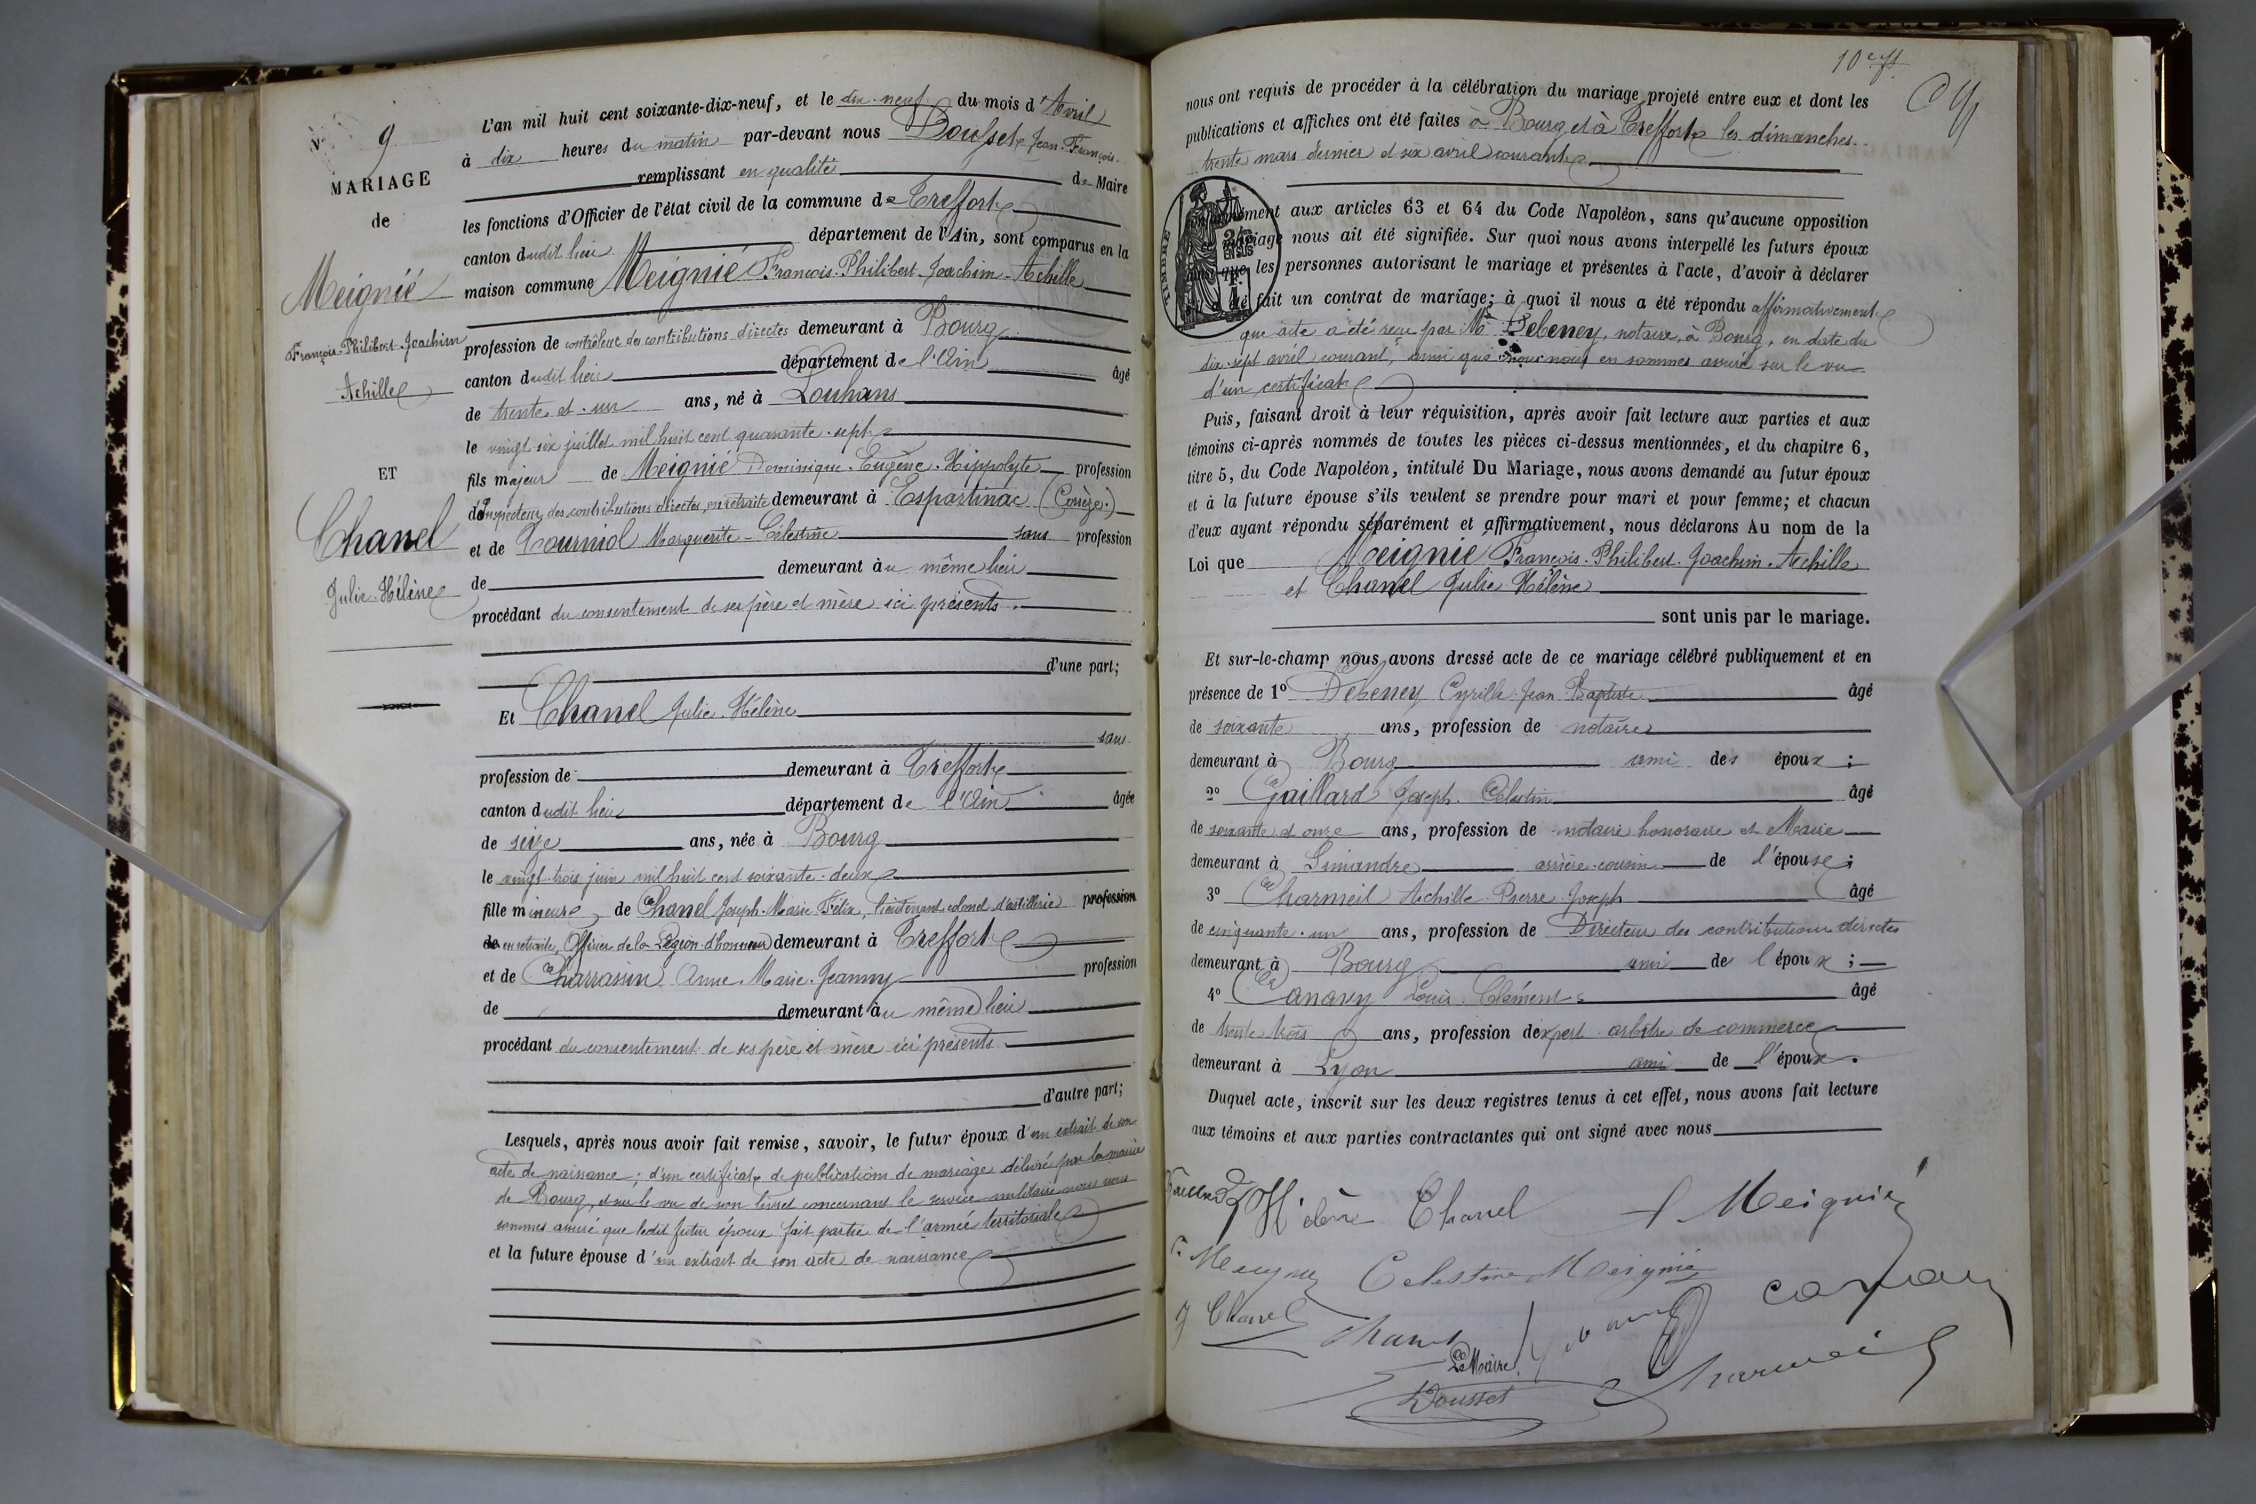 N° 9
MARIAGE
de
Meignié
François-Philibert-Joachim
Achille
ET
Chanel
Julie-Hélène
L'an mil huit cent soixante-dix-neuf, et le dix-neuf du mois d'Avril
à dix heures du matin par-devant nous Dousset Jean-François
remplissant en qualité de Maire
les fonctions d'Officier de l'état civil de la commune de Treffort
canton dudit lieu département de l'Ain, sont comparus en la
maison commune Meignié François-Philibert-Joachim-Achille
profession de contrôleur des contributions directes demeurant à Bourg
canton dudit lieu département de l'Ain âgé
de trente et un ans, né à Louhans
le vingt six juillet mil huit cent quarante-sept
fils majeur de Meignié Dominique-Eugène-Hippolyte profession
d'Inspecteur des contributions directes, en retraite demeurant à Espartinac (Corrèze)
et de Tourniol Marguerite-Célestine sans profession
de demeurant au même lieu
procédant du consentement de ses père et mère ici présents.
d'une part;
Et Chanel Julie-Hélène
sans
profession de demeurant à Treffort
canton dudit lieu département de l'Ain âgée
de seize ans, née à Bourg
le vingt-trois juin mil huit cent soixante-deux
fille mineure de Chanel Joseph-Marie Félix, lieutenant-colonel d'artillerie profession
de en retraite, Officier de la Légion d'honneur demeurant à Treffort
et de Charrassin Anne-Marie-Jeanny profession
de demeurant au même lieu
procédant du consentement de ses père et mère ici présents
d'autre part;
Lesquels, après nous avoir fait remise, savoir, le futur époux d'un extrait de son
acte de naissance; d'un certificat de publications de mariage délivré par la mairie
de Bourg, et sur le vu de son livret concernant le service militaire nous nous
sommes assuré que ledit futur époux fait partie de l'armée territoriale
et la future épouse d'un extrait de son acte de naissance
10
nous ont requis de procéder à la célébration du mariage projeté entre eux et dont les
publications et affiches ont été faites à Bourg et à Treffort les dimanches
trente mars dernier et six avril courant
TIMBRE
2/10
EN SUS
conformément aux articles 63 et 64 du Code Napoléon, sans qu'aucune opposition
mariage nous ait été signifiée. Sur quoi nous avons interpellé les futurs époux
ainsi que les personnes autorisant le mariage et présentes à l'acte, d'avoir à déclarer
s'il a été fait un contrat de mariage; à quoi il nous a été répondu affirmativement
que acte a été reçu par Me Debeney, notaire, à Bourg, en date du
dix-sept avril courant, ainsi que nous nous en sommes assuré sur le vu
d'un certificat
Puis, faisant droit à leur réquisition, après avoir fait lecture aux parties et aux
témoins ci-après nommés de toutes les pièces ci-dessus mentionnées, et du chapitre 6,
titre 5, du Code Napoléon, intitulé Du Mariage, nous avons demandé au futur époux
et à la future épouse s'ils veulent se prendre pour mari et pour femme; et chacun
d'eux ayant répondu séparément et affirmativement, nous déclarons Au nom de la
Loi que Meignié François-Philibert-Joachim-Achille
et Chanel Julie Hélène
sont unis par le mariage.
Et sur-le-champ nous avons dressé acte de ce mariage célébré publiquement et en
présence de 1° Debeney Cyrille-Jean-Baptiste âgé
de soixante ans, profession de notaire
demeurant à Bourg ami des époux;
2° Gaillard Joseph-Célestin âgé
de soixante et onze ans, profession de notaire honoraire et Maire
demeurant à Simandre arrière-cousin de l'épouse;
3° Charmeil Achille Pierre Joseph âgé
de cinquante-un ans, profession de Directeur des contributions directes
demeurant à Bourg ami de l'époux;
4° Canavy Louis Clément âgé
de trente trois ans, profession d'expert arbitre de commerce
demeurant à Lyon ami de l'époux.
Duquel acte, inscrit sur les deux registres tenus à cet effet, nous avons fait lecture
aux témoins et aux parties contractantes qui ont signé avec nous
Hélène Chanel A Meignié
Celestine Meignié
J Chanel
Le Maire
Dousset
Charmeil